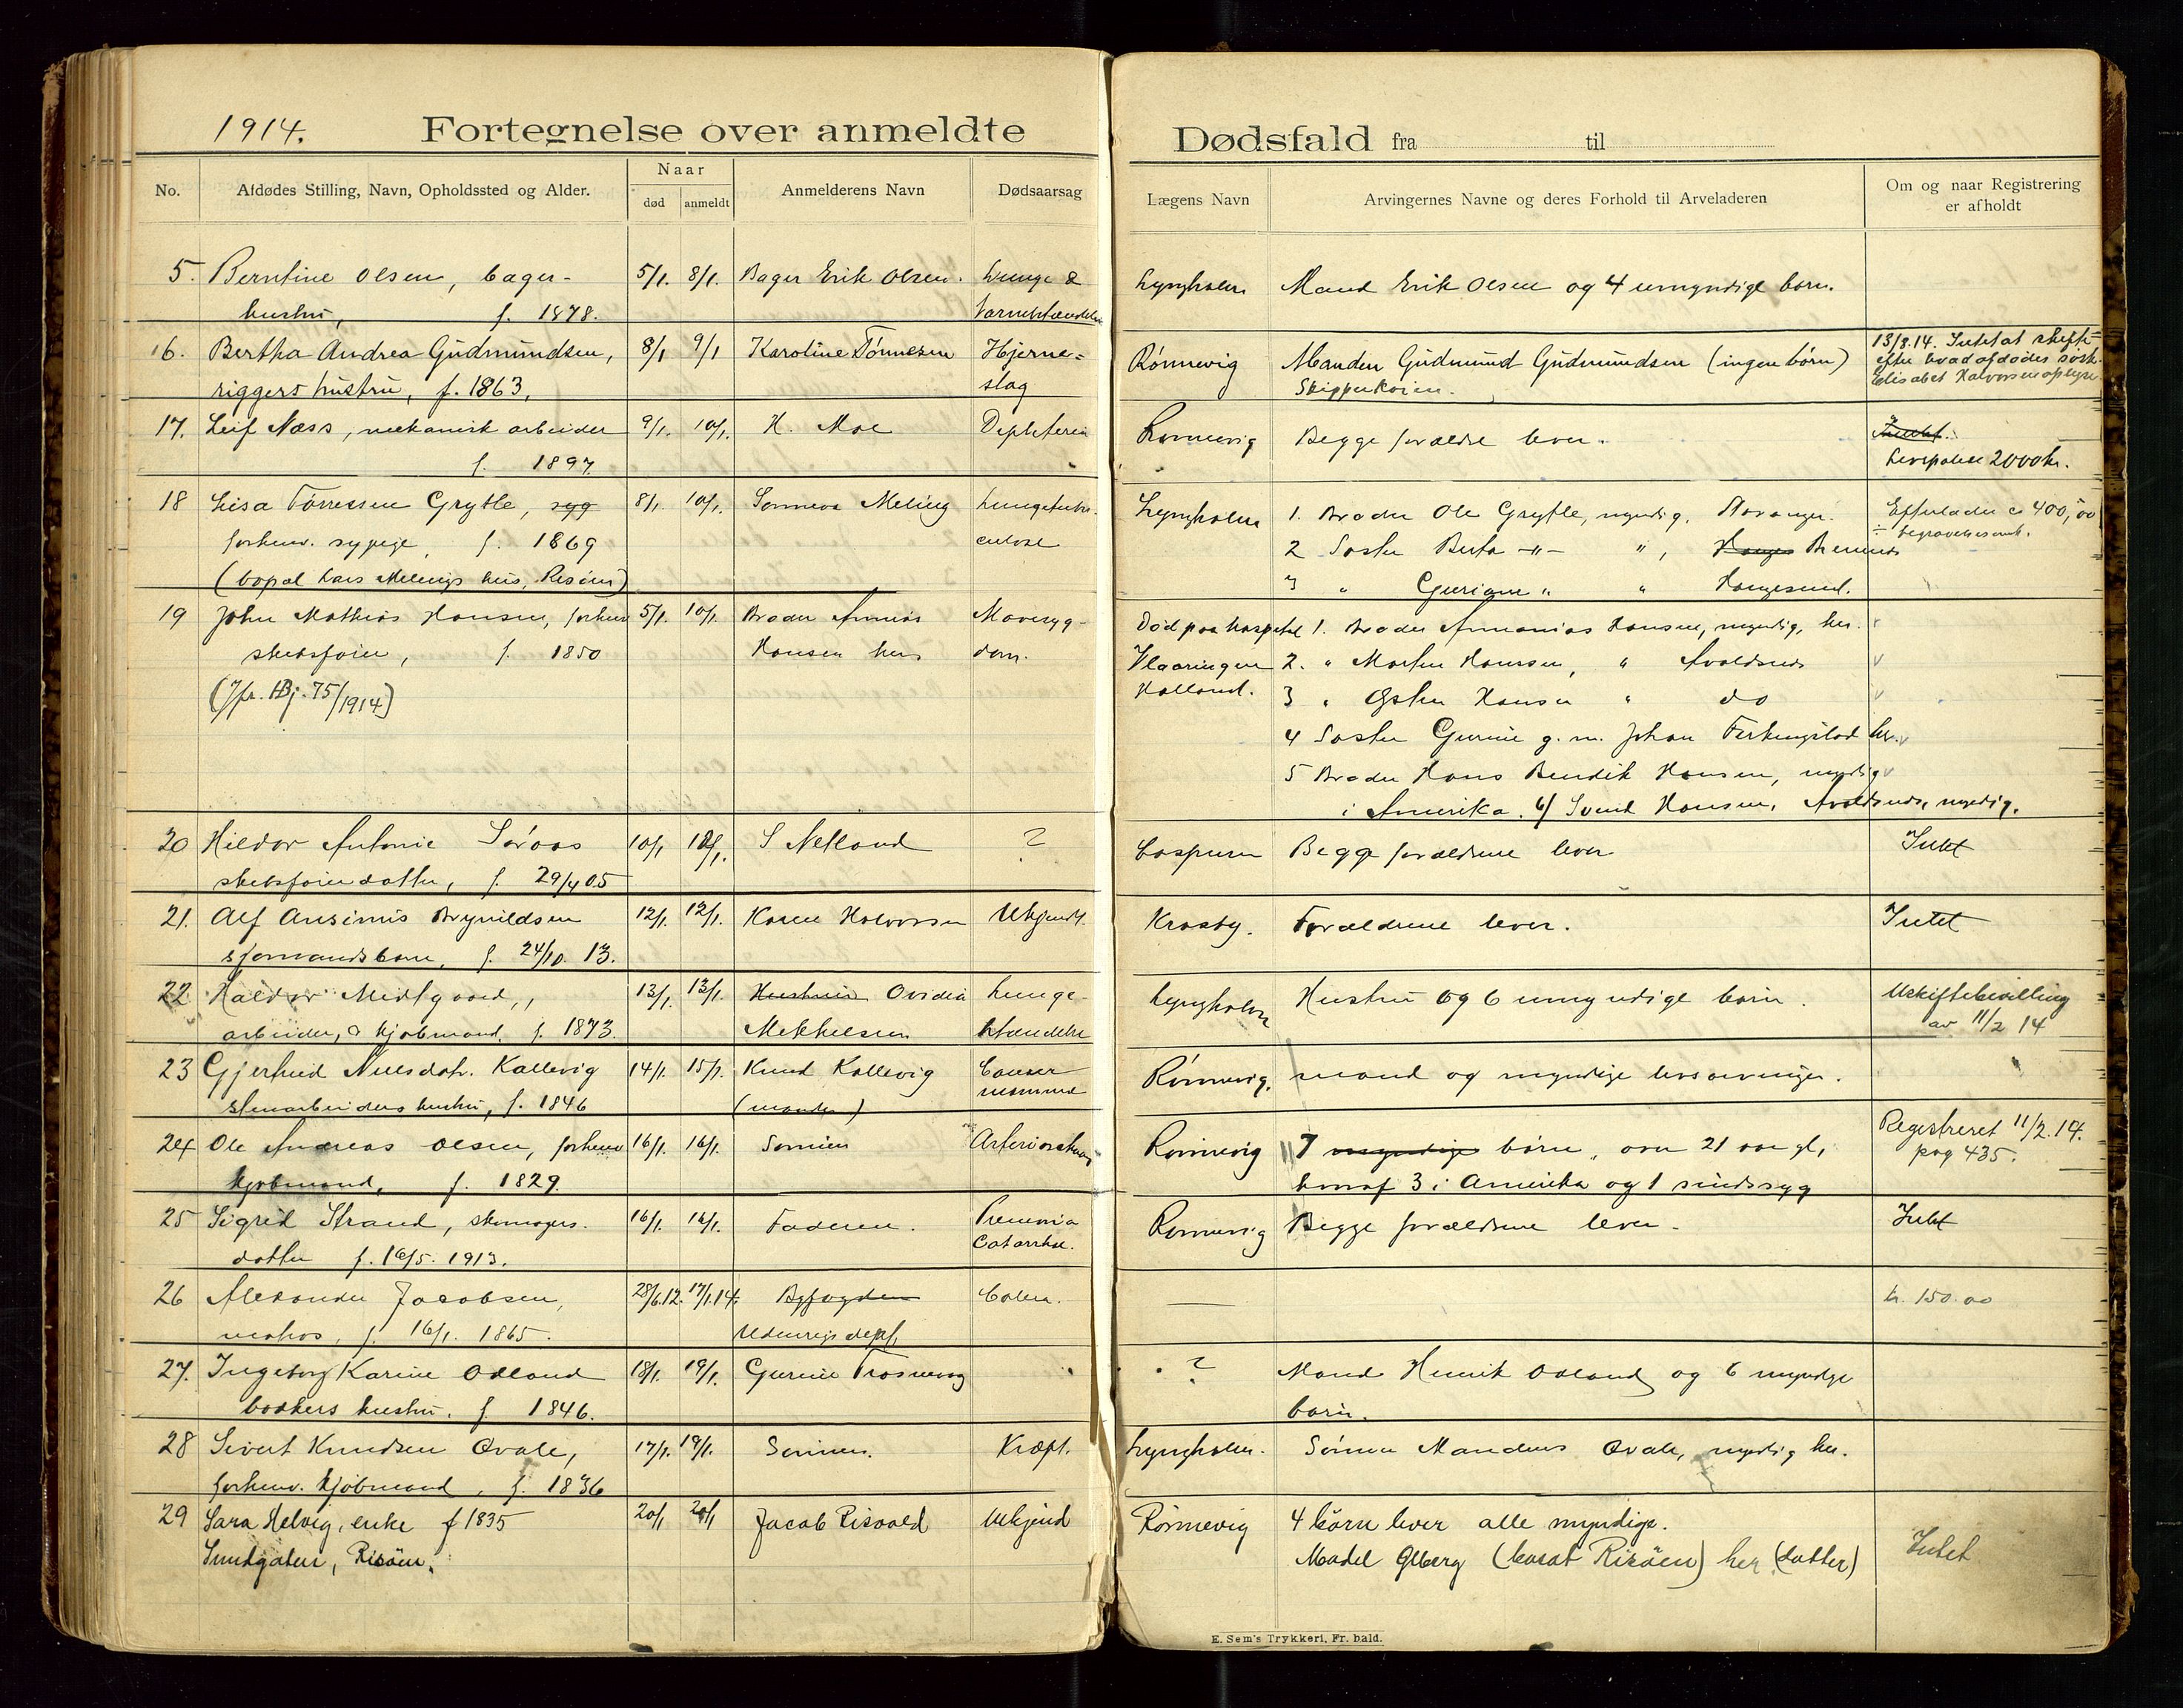 1914. Fortegnelse over anmeldte Dødsfald fra til
No. Afdødes Stilling, Navn, Opholdssted og Alder. Naar død anmeldt Anmelderens Navn Dødsaarsag Lægens Navn Arvingernes Navne og deres Forhold til Arveladeren Om og naar Registrering er afholdt
5. Berntine Olsen, bager- 5/1. 8/1. Bager Erik Olsen. Lunge & Lyngholm Mand Erik Olsen og 4 umyndige børn.
hustru, f. 1878.
16. Bertha Andrea Gudmundsen, 8/1 9/1 Karoline Tönnesen Hjerne= Rönnevig Manden Gudmund Gudmundsen (ingen börn) 13/3.14. Intet at skifte
riggers hustru, f. 1863, slag efter hvad afdødes søst.
Elisabet Halvorsen oplyser
17. Leif Næss, mekanisk arbeider 9/1. 10/1. H. Moe Difteria Rönnevig Begge forældre lever. Intet.
f. 1897 2000 kr.
18 Lisa Törressen Grytle, syg 8/1. 10/1. Sonneva Meling Lungetuber- Lyngholm 1. Broder Ole Grytle, myndig, Stavanger. Efterlader ca 400,00
forhenv. sypige, f. 1869 culose 2 Søster Berta -"- ", Bremnes ÷ begravelsesomk.
(bopæl Lars Melings hus, Risöen) 3 " Guriane " " Haugesund.
19 John Mathias Hansen, forhenv 5/1. 10/1. Broder Ananias Mavesyg- Død paa hospital 1. Broder Ananias Hansen, myndig, her. v
skibsfører, f. 1850 Hansen her dom. Vlaardingen 2. " Morten Hansen, " Avaldsnes v
(Jfr. HBj. 75/1914) Holland. 3 " Østen Hansen " do v
4 Søster Gurine g. m. Johan Ferkingstad her. v
5 Broder Hans Bendik Hansen, myndig v
i Amerika. 6/ Svend Hansen, Avaldsnes, myndig.
20 Hildor Antonie Söraas 10/1 12/1. S Netland ? Caspersen Begge forældrene lever Intet
skibsførerdatter, f. 29/4 05
21. Alf Ansinius Brynildsen 12/1. 12/1. Karen Halvorsen Ukjendt. Krosby. Forældrene lever. Intet
sjømandsbarn, f. 24/10. 13.
22 Haldor Midtgaard, 13/1 13/1. Hustruen Ovidia Lunge- Lyngholm Hustru og 6 umyndige børn. Uskiftebevilling
arbeider, kjøbmand, f. 1873. Mekkelsen betændelse av 11/2 14
23 Gjertrud Nilsdatr. Kallevig 14/1. 15/1. Knud Kallevig Cancer Rönnevig. mand og myndige livsarvinger.
stenarbeiders hustru, f. 1846 (manden) mammæ
24 Ole Andreas Olsen, forhenv 16/1. 16/1. Sønnen Rönnevig 7 myndige børn, over 21 aar gl, Registreret 11/2.14.
kjøbmand, f. 1829. hvoraf 3 i Amerika og 1 sindssyg pag 435.
25 Sigrid Strand, skomagers- 16/1. 16/1. Faderen. Pneumonia Rönnevig Begge forældrene lever. Intet
datter f. 16/5. 1913. Catarrhal.
26 Alexander Jacobsen, 28/6.12. 17/1.14. Byfogden Colera. — kr. 150.00
matros, f. 16/1. 1865. Udenrigsdept.
27. Ingeborg Karine Odland 18/1. 19/1. Gurine Trosnevaag ? Mand Henrik Odland og 6 myndige
bødkers hustru. f. 1846. børn.
28 Sivert Knudsen Qvale, 17/1. 19/1. Sønnen. Kræft. Lyngholm. Sønnen Mandeus Qvale, myndig her.
forhenv. kjøbmand, f. 1836
29 Sara Helvig, enke f 1835 20/1 20/1 Jacob Risvold Ukjend Rönnevig 4 börn lever alle myndige. Intet
Sundgaten, Risöen. Madel Glberg (bosat Risöen) her (datter)
E. Sem's Trykkeri, Fr.hald.